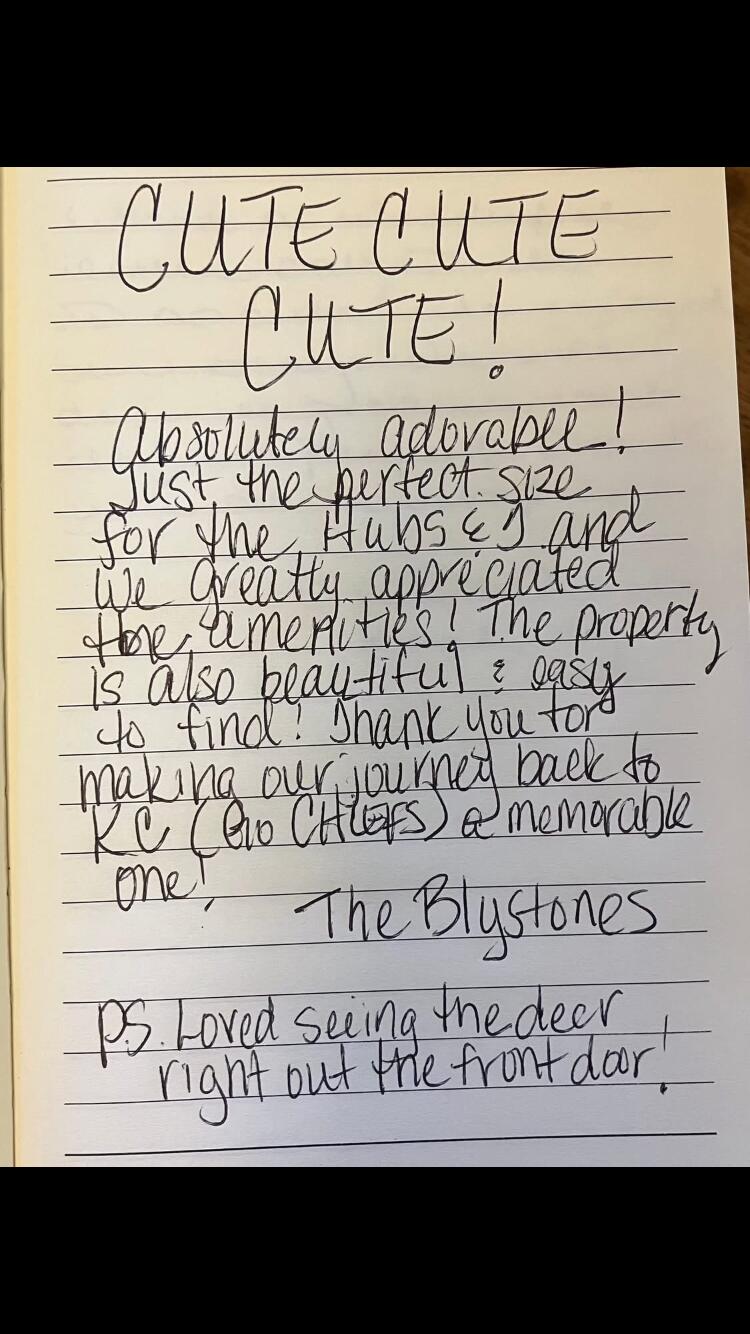 CUTE CUTE
CUTE!
Absolutely adorable!
Just the perfect size
for the Hubs & I and
we greatly appreciated
the amenities! The property
is also beautiful & easy
to find! Thank you for
making our journey back to
KC (Go CHIEFS) a memorable
one!
The Blystones
P.S. Loved seeing the deer
right out the front door!